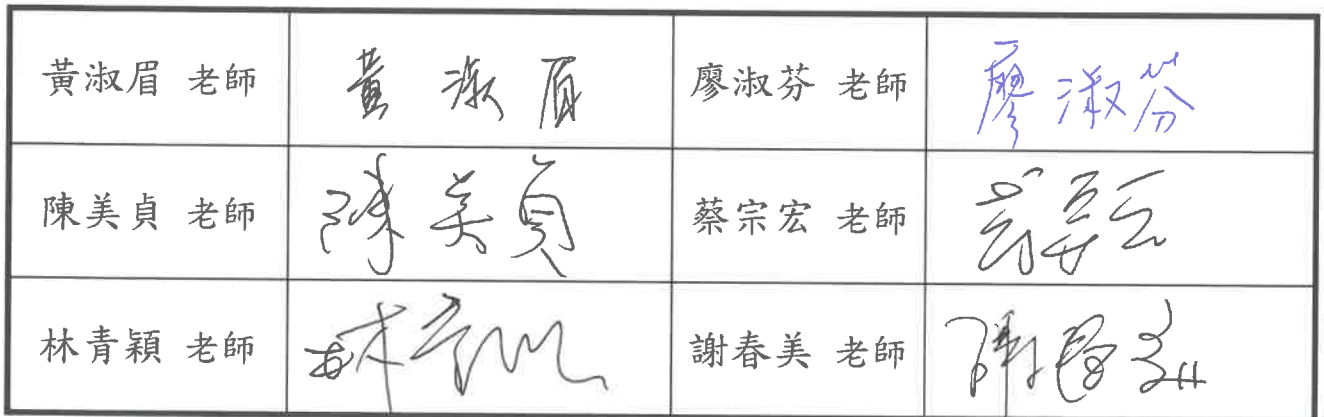 黃淑眉 老師 黃淑眉 廖淑芬 老師 廖淑芬
陳美貞 老師 陳美貞 蔡宗宏 老師
林青穎 老師 謝春美 老師